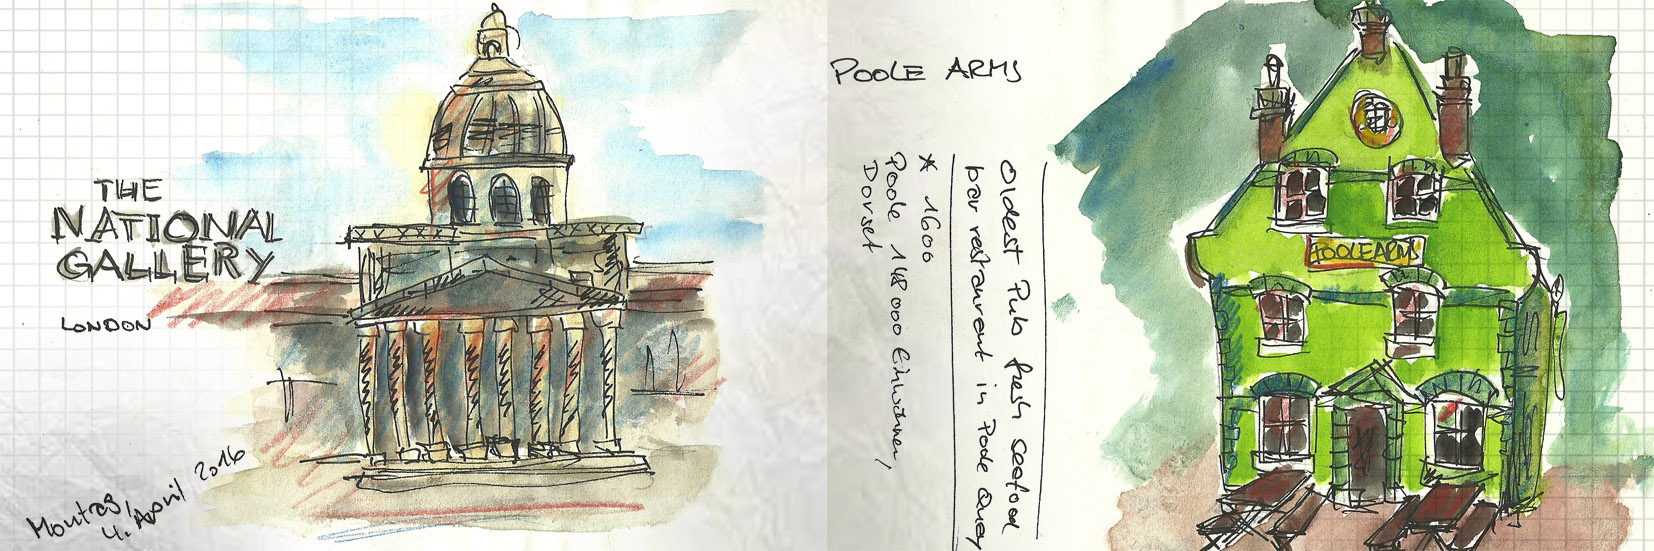 THE
NATIONAL
GALLERY
LONDON
Montag,
4. April 2016
POOLE ARMS
Oldest Pub fresh seafood
bar restaurant in Poole Quay
* 1600
Poole 148 000 Einwohner,
Dorset
POOLE ARMS